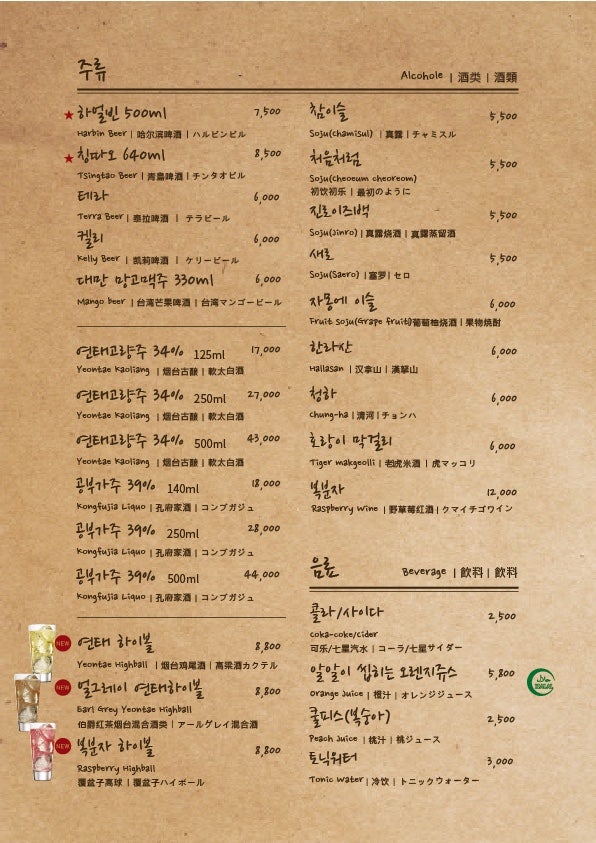 주류
Alcohole | 酒类 | 酒類
하얼빈 500ml 7,500
Harbin Beer | 哈尔滨啤酒 | ハルビンビル
칭따오 640ml 8,500
Tsingtao Beer | 青島啤酒 | チンタオビル
테라 6,000
Terra Beer | 泰拉啤酒 | テラビール
켈리 6,000
Kelly Beer | 凯莉啤酒 | ケリービール
대만 망고맥주 330ml 6,000
Mango beer | 台湾芒果啤酒 | 台湾マンゴービール
연태고량주 34% 125ml 17,000
Yeontae Kaoliang | 烟台古酿 | 軟太白酒
연태고량주 34% 250ml 27,000
Yeontae Kaoliang | 烟台古酿 | 軟太白酒
연태고량주 34% 500ml 43,000
Yeontae Kaoliang | 烟台古酿 | 軟太白酒
공부가주 39% 140ml 18,000
Kongfujia Liquo | 孔府家酒 | コンブガジュ
공부가주 39% 250ml 28,000
Kongfujia Liquo | 孔府家酒 | コンブガジュ
공부가주 39% 500ml 44,000
Kongfujia Liquo | 孔府家酒 | コンブガジュ
NEW 연태 하이볼 8,800
Yeontae Highball | 烟台鸡尾酒 | 高梁酒カクテル
NEW 얼그레이 연태하이볼 8,800
Earl Grey Yeontae Highball
伯爵红茶烟台混合酒类 | アールグレイ混合酒
NEW 복분자 하이볼 8,800
Raspberry Highball
覆盆子高球 | 覆盆子ハイボール
참이슬 5,500
Soju(chamisul) | 真露 | チャミスル
처음처럼 5,500
Soju(cheoeum cheoreom)
初饮初乐 | 最初のように
진로이즈백 5,500
Soju(Jinro) | 真露烧酒 | 真露蒸留酒
새로 5,500
Soju(Saero) | 塞罗 | セロ
자몽에 이슬 6,000
Fruit Soju(Grape fruit)葡萄柚烧酒 | 果物焼酎
한라산 6,000
Hallasan | 汉拿山 | 漢拏山
청하 6,000
Chung-ha | 清河 | チョンハ
호랑이 막걸리 6,000
Tiger makgeolli | 老虎米酒 | 虎マッコリ
복분자 12,000
Raspberry Wine | 野草莓红酒 | クマイチゴワイン
음료
Beverage | 飲料 | 飲料
콜라/사이다 2,500
coka-coke/Cider
可乐/七星汽水 | コーラ/七星サイダー
알알이 씹히는 오렌지쥬스 5,800
Orange Juice | 橙汁 | オレンジジュース
쿨피스(복숭아) 2,500
Peach Juice | 桃汁 | 桃ジュース
토닉워터 3,000
Tonic Water | 冷饮 | トニックウォーター